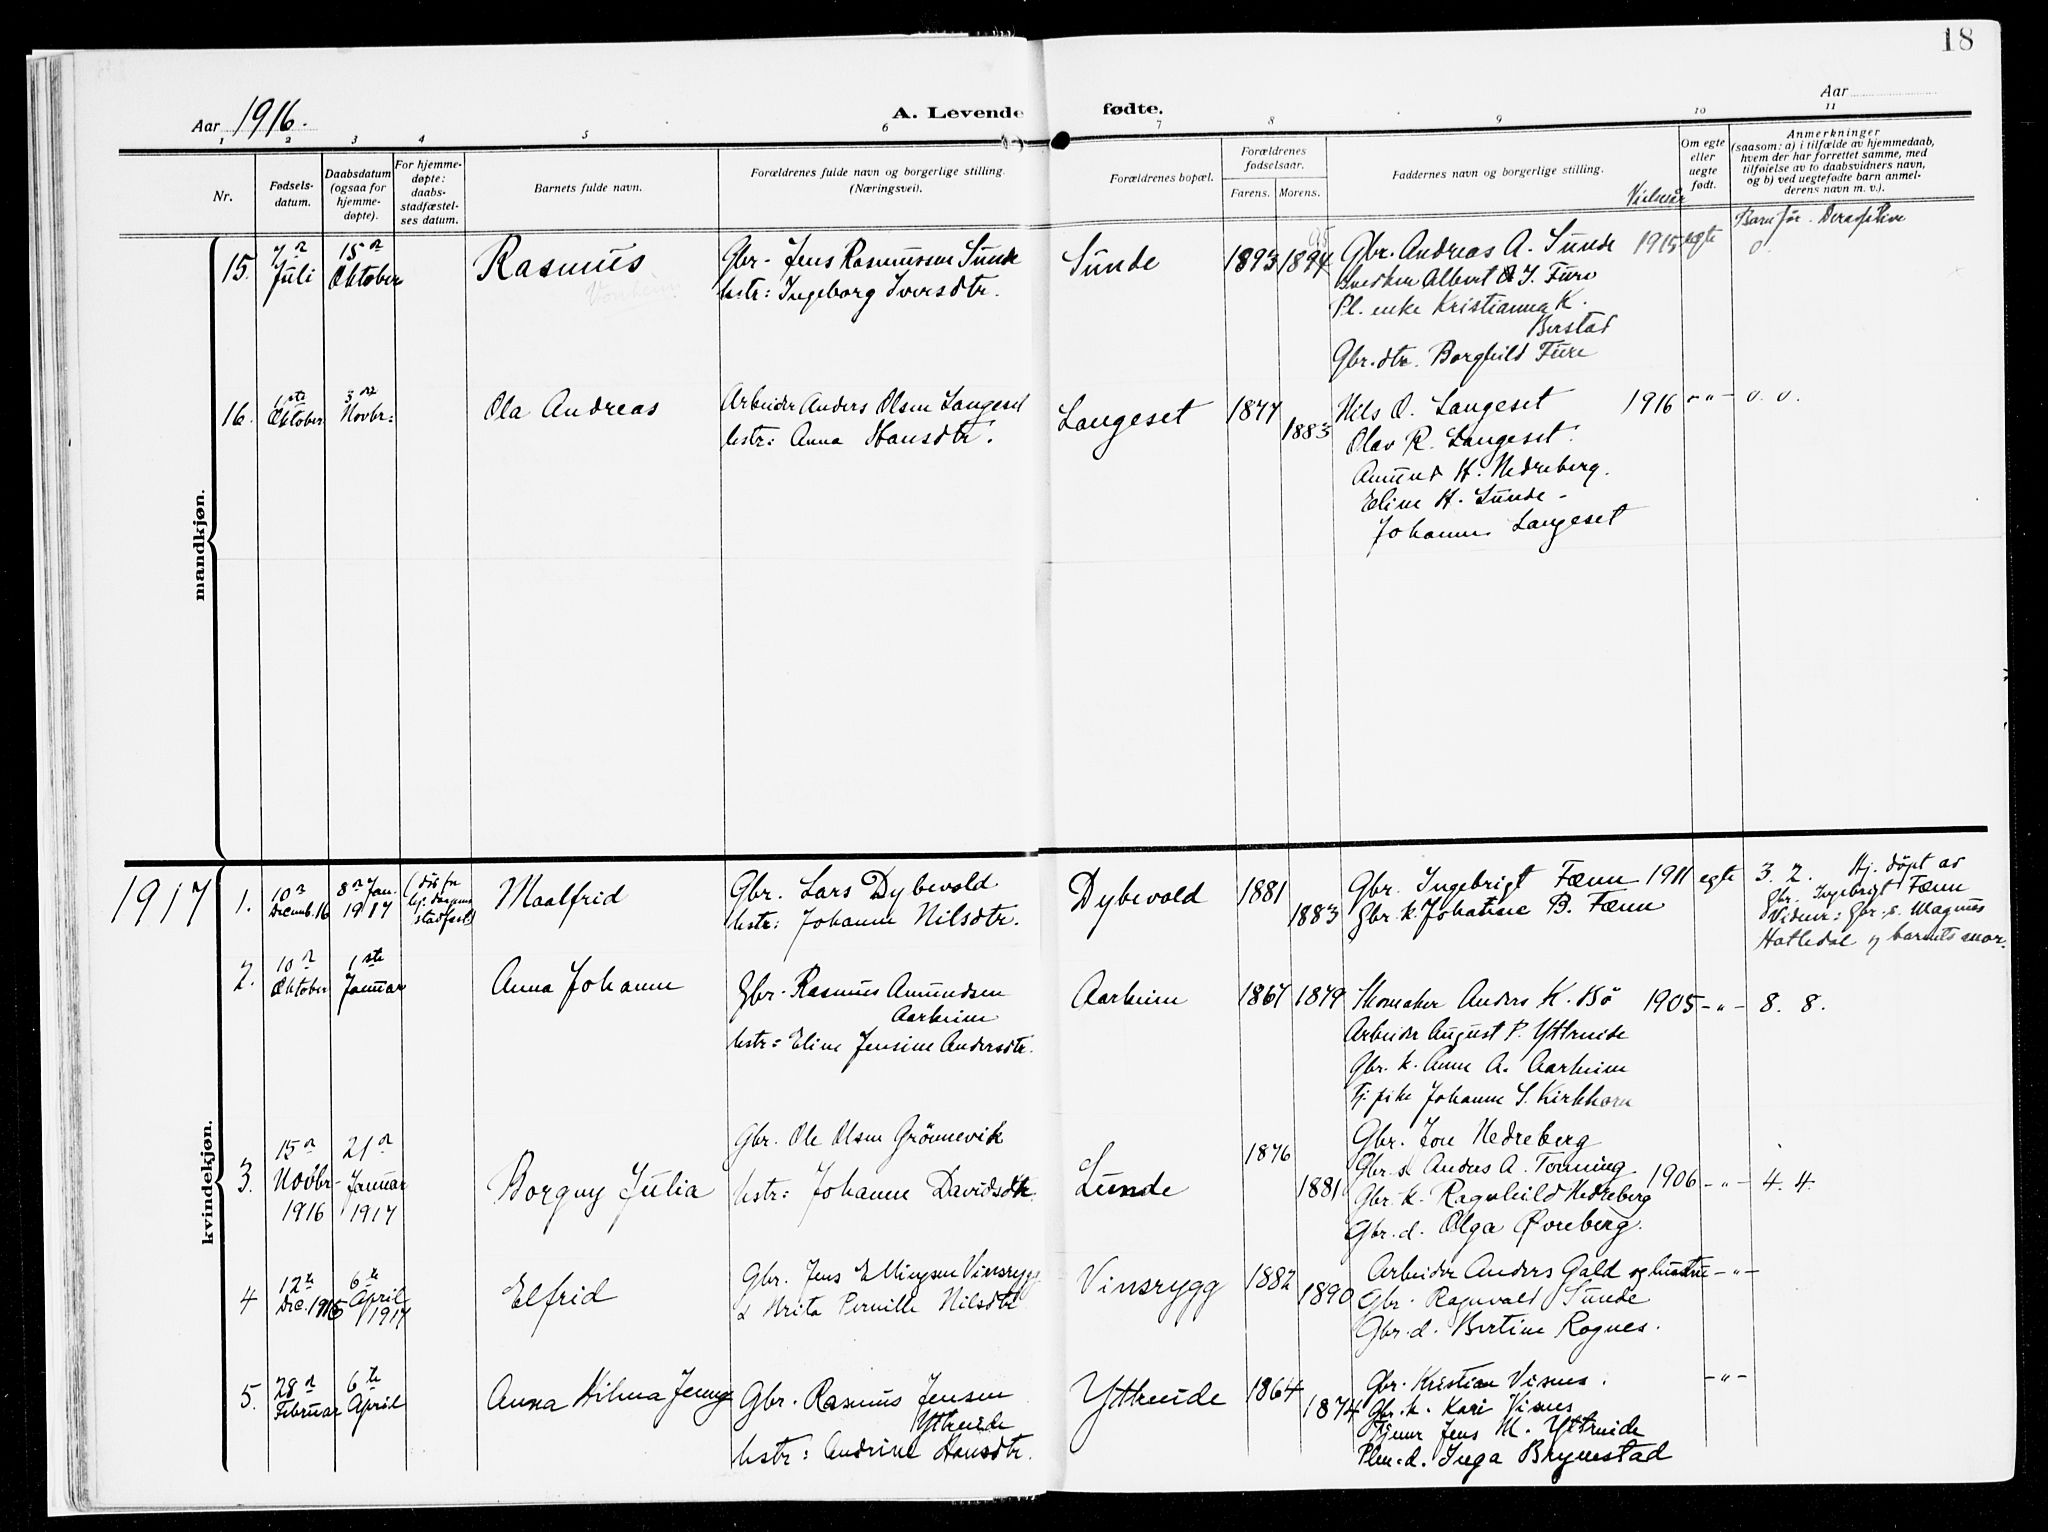 18
Aar 1916.
A. Levende fødte.
Aar
1 2 3 4 5 6 7 8 9 10 11
Nr.
Fødsels-
datum.
Daabsdatum
(ogsaa for
hjemme-
døpte).
For hjemme-
døpte:
daabs-
stadfæstel-
ses datum.
Barnets fulde navn.
Forældrenes fulde navn og borgerlige stilling.
(Næringsvei).
Forældrenes bopæl.
Forældrenes
fødselsaar.
Farens. Morens.
Faddernes navn og borgerlige stilling.
Vielsesår
Om egte
eller
uegte
født.
Anmerkninger
(saasom: a) i tilfælde av hjemmedaab,
hvem der har forrettet samme, med
tilføielse av to daabsvidners navn,
og b) ved uegtefødte barn anmel-
derens navn m. v.).
Barn før. Derav i live
mandkjøn.
15.
7de
Juli
15de
Oktober
Rasmus
Vonheim
Gbr. Jens Rasmussen Sunde
hstr: Ingeborg Iversdtr.
Sunde
1893
1894
95
Gbr. Andreas A. Sunde
Snedker Albert A. J. Fure
Pl. enke Kristianna K.
Berstad
Gbr. dtr. Borghild Fure
1915
egte
0.
16.
1ste
Oktober
3die
Novbr:
Ola Andreas
Arbeider Anders Olsen Langeset
hstr: Anna Hansdtr.
Langeset
1877
1883
Nils O. Langeset
Olav R. Langeset
Amund H. Nedreberg.
Eline H. Sunde -
Johannes Langeset
1916
- " -
0. 0.
1917
kvindekjøn.
1.
10de
Decemb. 16
8de Jan.
1917
Maalfrid
Gbr. Lars Dybevold
hstr: Johanne Nilsdtr.
Dybevold
1881
1883
Gbr. Ingebrigt Fænn
Gbr. k. Johanne B. Fænn
1911
egte
3. 2. Hj. døpt av
Gbr. Ingebrigt Fænn
Vidner: Gbr. s. Magnus
Hatledal og barnets mor.
2.
10de
Oktober
1ste
Januar
Anna Johanne
Gbr. Rasmus Amundsen
Aarheim
hstr: Eline Jensine Andersdtr.
Aarheim
1867
1879
Skomaker Anders K. Bø
Arbeider August P. Yttreeide
Gbr. k. Anne A. Aarheim
Tj. pike Johanne S. Kirkhorn
1905
- " -
8. 8.
3.
15de
Novbr-
1916
21de
Januar
1917
Borgny Julia
Gbr. Ole Olsen Grönnevik
hstr: Johanne Davidsdtr.
Lunde
1876
1881
Gbr. Jon Nedreberg
Gbr. s. Anders A. Tonning
Gbr. k. Ragnhild Nedreberg
Gbr. d. Olga Øvreberg.
1906
- " -
4. 4.
4
12te
Dec. 1916
6te
April
1917
Elfrid
Gbr. Jens Ellingsen Vinsrygg
& Marita Pernille Nilsdtr
Vinsrygg
1882
1890
Arbeider Anders Gald og hustru
Gbr. Ragnvald Sunde
Gbr. d. Bertine Rognes.
- " -
5.
28de
Februar
6te
April
Anna Hilma Jenny
Gbr. Rasmus Jensen
Yttreeide
hstr: Andrine Hansdtr.
Yttreeide
1864
1874
Gbr. Kristian Visnes.
Gbr. k. Kari Visnes
Tjener Jens M. Yttreeide
Plm. d. Inga Brynestad
- " -